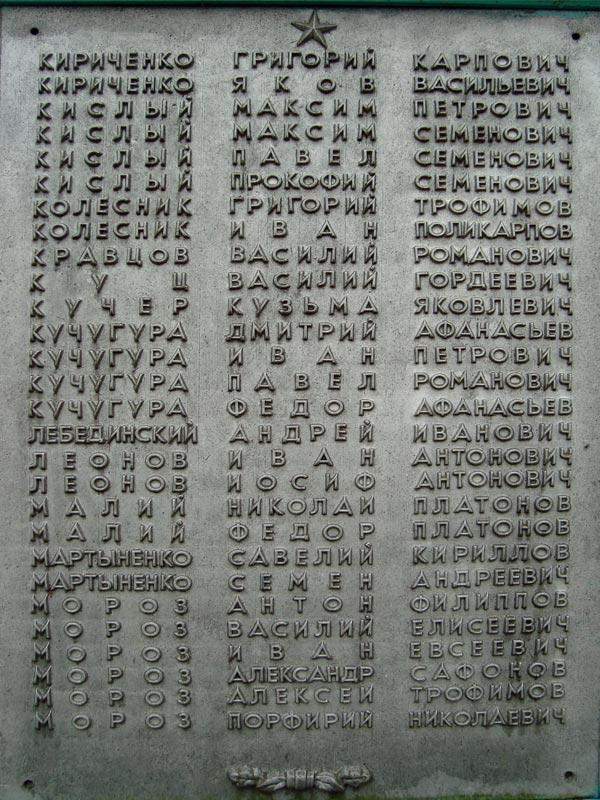 КИРИЧЕНКО ГРИГОРИЙ КАРПОВИЧ
КИРИЧЕНКО ЯКОВ ВАСИЛЬЕВИЧ
КИСЛЫЙ МАКСИМ ПЕТРОВИЧ
КИСЛЫЙ МАКСИМ СЕМЕНОВИЧ
КИСЛЫЙ ПАВЕЛ СЕМЕНОВИЧ
КИСЛЫЙ ПРОКОФИЙ СЕМЕНОВИЧ
КОЛЕСНИК ГРИГОРИЙ ТРОФИМОВ
КОЛЕСНИК ИВАН ПОЛИКАРПОВ
КРАВЦОВ ВАСИЛИЙ РОМАНОВИЧ
КУЦ ВАСИЛИЙ ГОРДЕЕВИЧ
КУЧЕР КУЗЬМА ЯКОВЛЕВИЧ
КУЧУГУРА ДМИТРИЙ АФАНАСЬЕВ
КУЧУГУРА ИВАН ПЕТРОВИЧ
КУЧУГУРА ПАВЕЛ РОМАНОВИЧ
КУЧУГУРА ФЕДОР АФАНАСЬЕВ
ЛЕБЕДИНСКИЙ АНДРЕЙ ИВАНОВИЧ
ЛЕОНОВ ИВАН АНТОНОВИЧ
ЛЕОНОВ ИОСИФ АНТОНОВИЧ
МАЛИЙ НИКОЛАИ ПЛАТОНОВ
МАЛИЙ ФЕДОР ПЛАТОНОВ
МАРТЫНЕНКО САВЕЛИЙ КИРИЛЛОВ
МАРТЫНЕНКО СЕМЕН АНДРЕЕВИЧ
МОРОЗ АНТОН ФИЛИППОВ
МОРОЗ ВАСИЛИЙ ЕЛИСЕЕВИЧ
МОРОЗ ИВАН ЕВСЕЕВИЧ
МОРОЗ АЛЕКСАНДР САФОНОВ
МОРОЗ АЛЕКСЕИ ТРОФИМОВ
МОРОЗ ПОРФИРИЙ НИКОЛАЕВИЧ